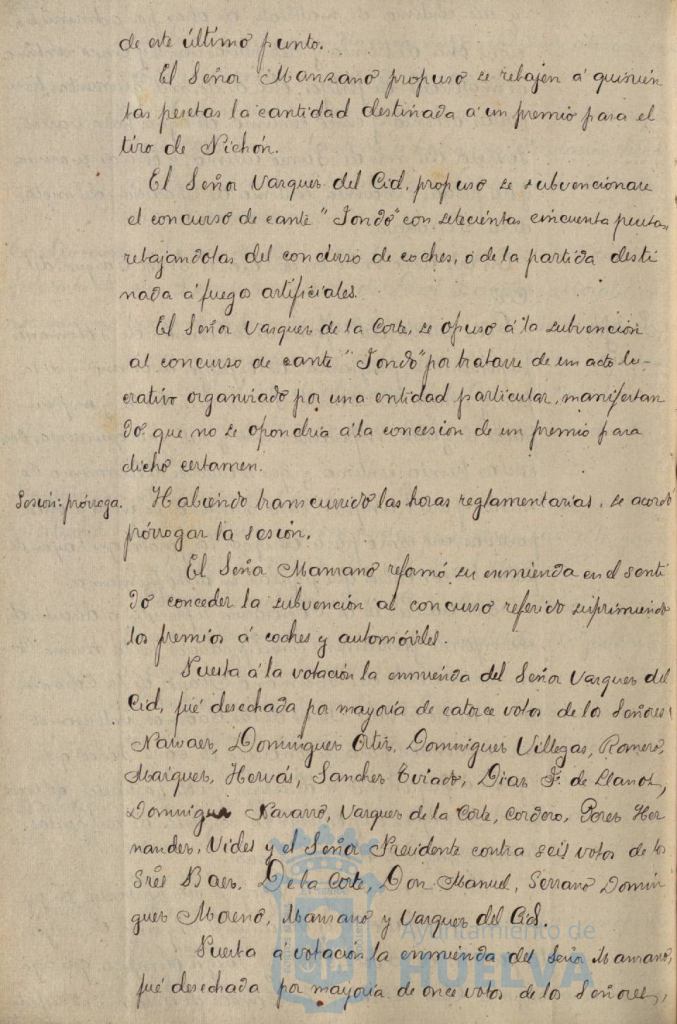 de este último punto.
El Señor Manzano propuso se rebajen á quinien
tas pesetas la cantidad destinada á un premio para el
tiro de Pichón.
El Señor Vazquez del Cid, propuso se subvencionare
el concurso de cante "Jondo" con setecientas cincuenta pesetas,
rebajandolas del concurso de coches, ó de la partida desti
nada á fuegos artificiales.
El Señor Vazquez de la Corte, se opuso á la subvención
al concurso de cante "Jondo" por tratarse de un acto lu-
crativo organizado por una entidad particular, manifestan
do que no se opondria á la concesion de un premio para
dicho certamen.
Sesión: prórroga. Habiendo transcurrido las horas reglamentarias, se acordó
prórrogar la sesión.
El Señor Manzano reformó su enmienda en el senti
do conceder la subvención al concurso referido suprimiendo
los premios á coches y automóviles.
Puesta á la votación la enmienda del Señor Vazquez del
Cid, fué desechada por mayoría de catorce votos de los Señores
Narvaez, Dominguez Ortiz, Dominguez Villegas, Romero,
Marquez, Hervás, Sanchez Tviado, Diaz F. de Llanos,
Dominguez Navarro, Vazquez de la Corte, Cordero, Perez Her
nandez, Vides y el Señor Presidente contra seis votos de los
Srés Baez, De la Corte, Don Manuel, Serrano, Domin
guez Moreno, Manzano y Vazquez del Cid.
Puesta á votación la enmienda del Señor Manzano,
fué desechada por mayoría de once votos de los Señores,
Ayuntamiento de
HUELVA